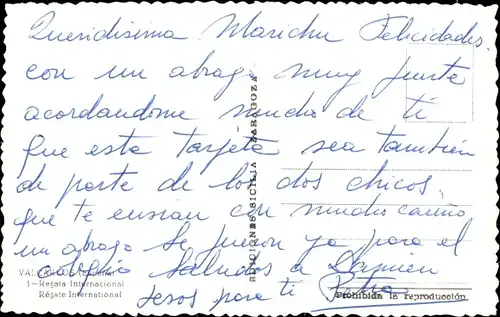 Queridisima Marichu Felicidades
con un abrazo muy fuerte
acordandome mucho de ti
que esta tarjeta sea tambien
de parte de los dos chicos.
que te envian con mucho cariño
un abrazo se fueron ya para el
colegio Saludos a Damien
besos para ti
EDICIONES SICILIA ZARAGOZA
1-Regata Internacional
Régate International
Prohibida la reproducción